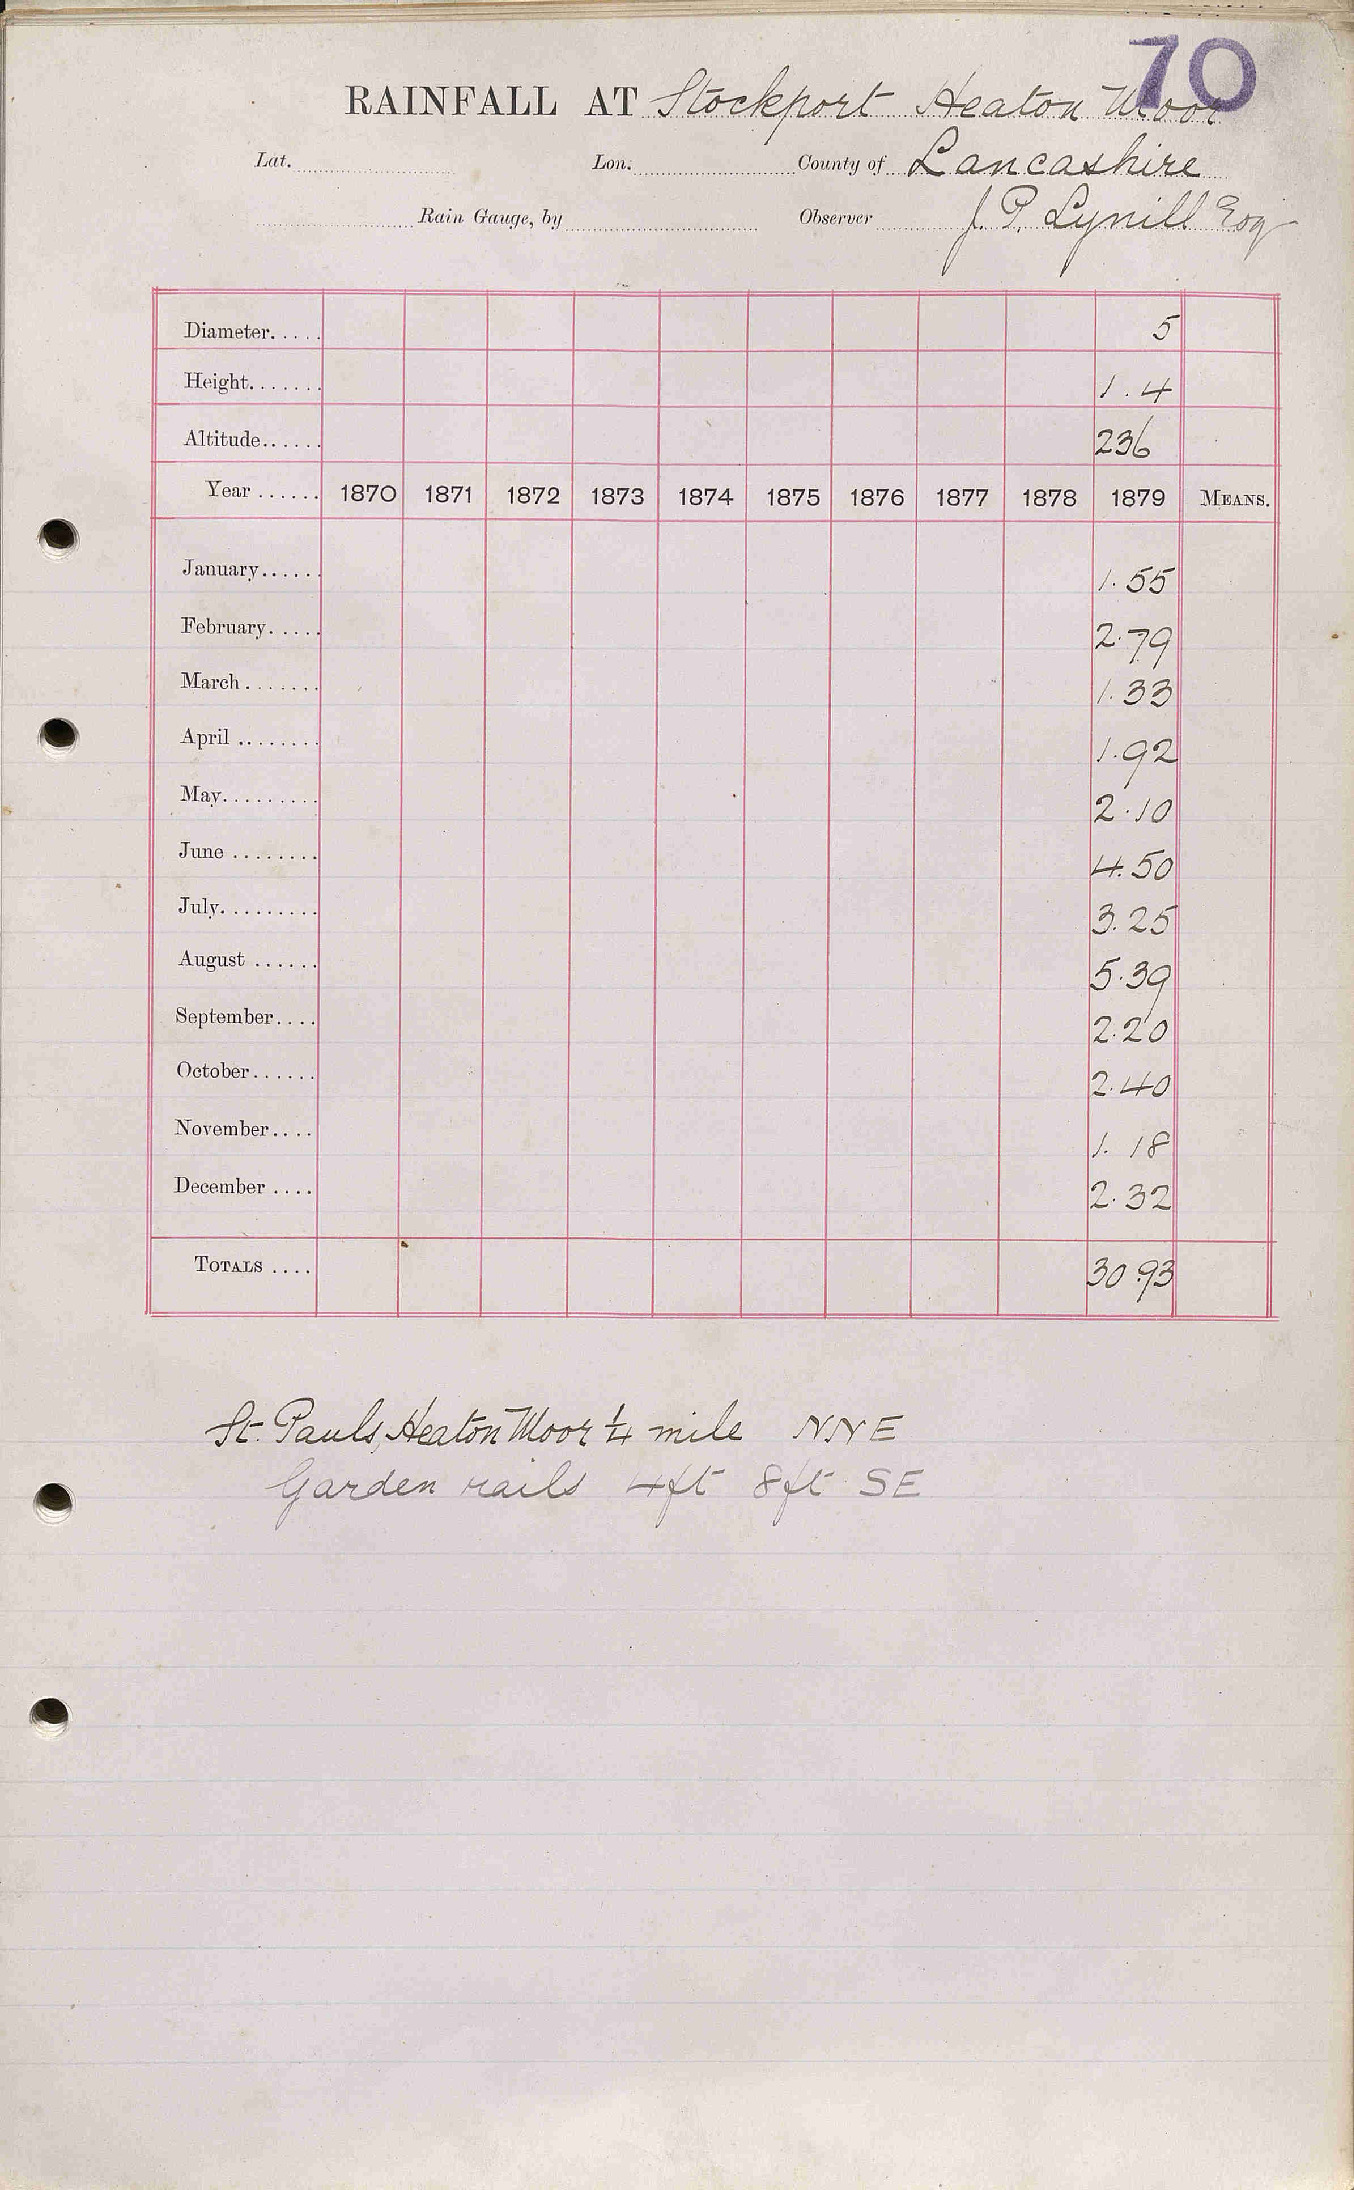 70
RAINFALL AT Stockport Heaton Moor
Lat. Lon. County of Lancashire
Rain Gauge, by Observer J. P. Lynill Esq
Diameter..... 5
Height....... 1.4
Altitude...... 236
Year ...... 1870 1871 1872 1873 1874 1875 1876 1877 1878 1879 MEANS.
January...... 1.55
February..... 2.79
March ....... 1.33
April ........ 1.92
May......... 2.10
June ........ 4.50
July......... 3.25
August ...... 5.39
September.... 2.20
October...... 2.40
November.... 1.18
December .... 2.32
TOTALS .... 30.93
St. Pauls, Heaton Moor 1/4 mile NNE
Garden rails 4ft 8ft SE